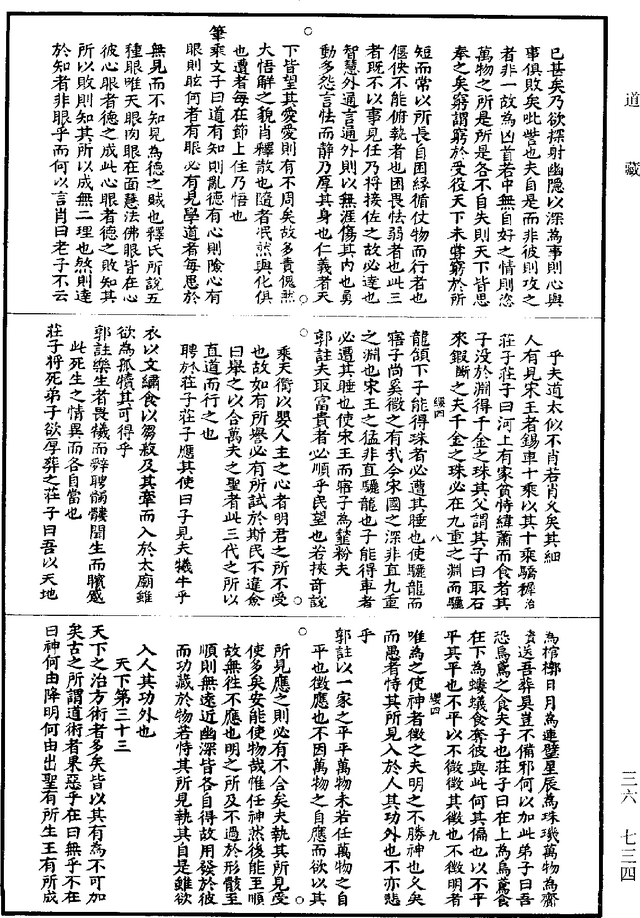 道藏
三六 七三四
已甚矣乃欲探射幽隱以深為事則心與
事俱敗矣吡訾也夫自是而非彼則攻之
者非一故為凶首若中無自好之情則恣
萬物之所是所是各不自失則天下皆思
奉之矣窮謂窮於受役天下未嘗窮於所
短而常以所長自困緣循仗物而行者也
偃佒不能俯執者也困畏怯弱者也此三
者既不以事見任乃將接佐之故必達也
智慧外通言通外則以無涯傷其內也勇
動多怨言怯而靜乃厚其身也仁義者天
下皆望其愛愛則有不周矣故多責傀然
大悟解之貌肖釋散也隨者泯然與化俱
也遭者每在節上住乃悟也
筆乘文子曰道有知則亂德有心則險心有
眼則眩何者有眼必有見學道者每思於
無見而不知見為德之賊也釋氏所說五
種眼唯天眼肉眼在面慧法佛眼皆在心
彼心眼者德之成此心眼者德之敗知其
所以敗則知其所以成無二理也然則達
於知者非眼乎而何以言肖曰老子不云
乎夫道大似不肖若肖久矣其細
人有見宋王者錫車十乘以其十乘驕穉治
莊子莊子曰河上有家貧恃緯蕭而食者其
子沒於淵得千金之珠其父謂其子曰取石
來鍜斷之夫千金之珠必在九重之淵而驪
龍頷下子能得珠者必遭其睡也使驪龍而
寤子尚奚微之有哉今宋國之深非直九重
之淵也宋王之猛非直驪龍也子能得車者
必遭其睡也使宋王而寤子為虀粉夫
郭註夫取富貴者必順乎民望也若挾奇說
乘天衢以嬰人主之心者明君之所不受
也故如有所譽必有所試於斯民不違僉
曰舉之以合萬夫之聖者此三代之所以
直道而行之也
聘於莊子莊子應其使曰子見夫犧牛乎
衣以文繡食以芻菽及其牽而入於太廟雖
欲為孤犢其可得乎
郭註樂生者畏犧而辭聘髑髏聞生而矉慼
此死生之情異而各自當也
莊子將死弟子欲厚葬之莊子曰吾以天地
為棺槨日月為連璧星辰為珠璣萬物為齎
送吾葬具豈不備邪何以加此弟子曰吾
恐烏鳶之食夫子也莊子曰在上為烏鳶食
在下為螻蟻食奪彼與此何其偏也以不平
平其平也不平以不徵徵其徵也不徵明者
唯為之使神者徵之夫明之不勝神也久矣
而愚者恃其所見入於人其功外也不亦悲
乎
郭註以一家之平平萬物未若任萬物之自
平也徵應也不因萬物之自應而欲以其
所見應之則必有不合矣夫執其所見受
使多矣安能使物哉惟任神然後能至順
故無徃不應也明之所及不過於形骸至
順則無遠近幽深皆各自得故用發於彼
而功藏於物若恃其所見執其自是雖欲
入人其功外也
天下第三十三
天下之治方術者多矣皆以其有為不可加
矣古之所謂道術者果惡乎在曰無乎不在
曰神何由降明何由出聖有所生王有所成